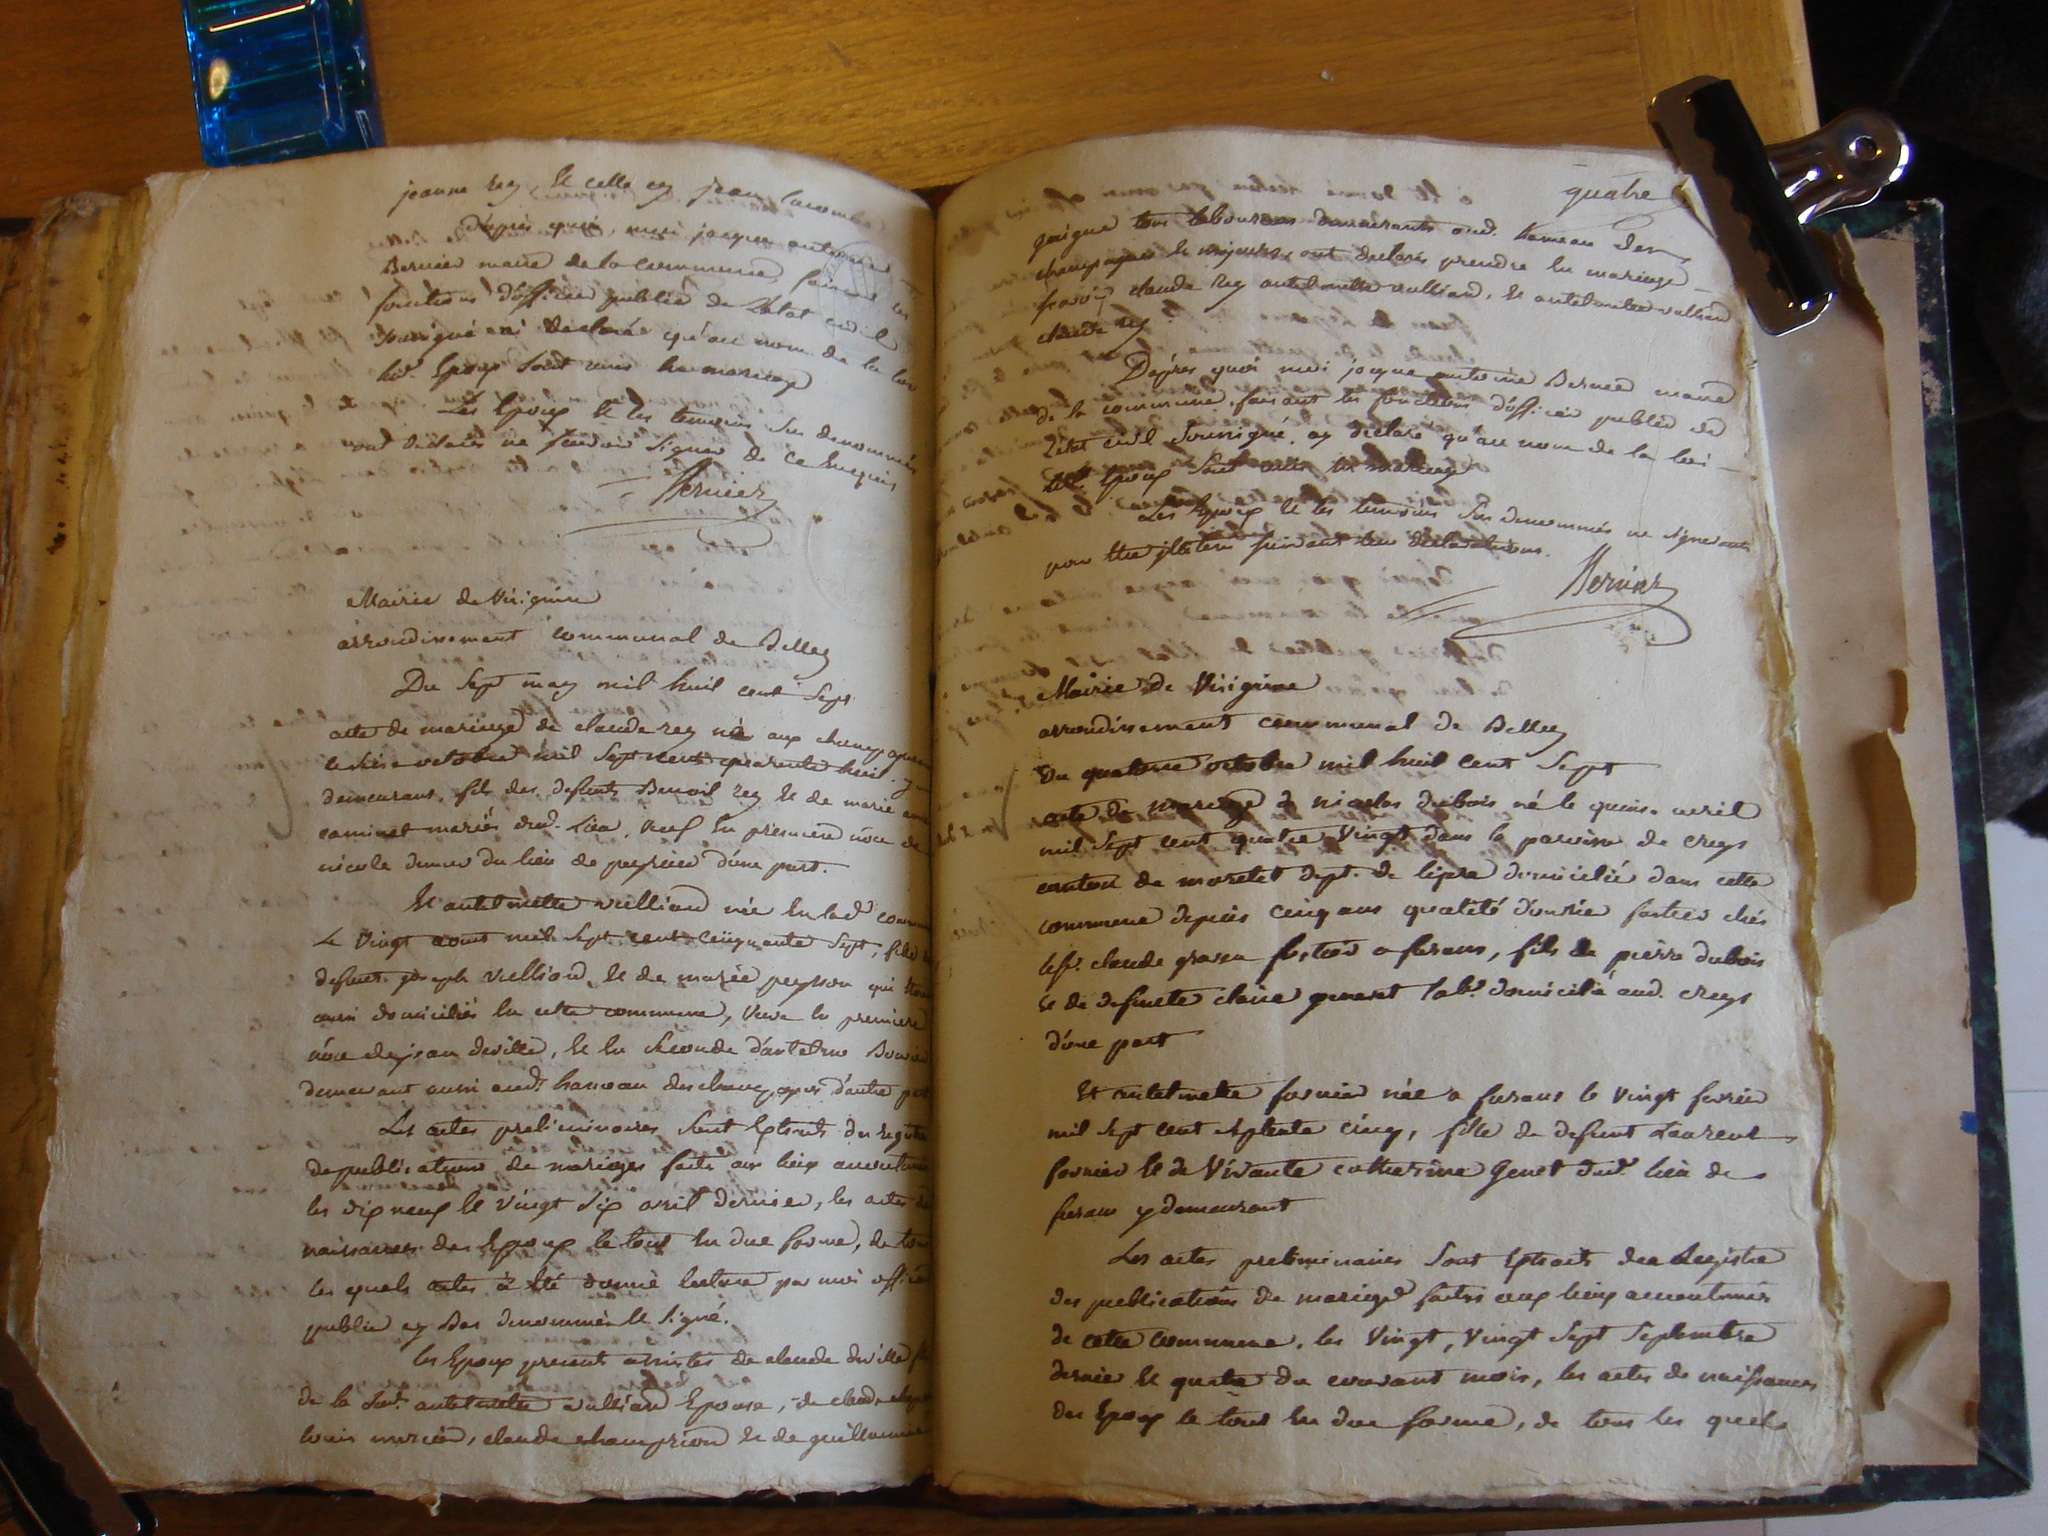 jeanne rey, et celle cy jean
D'après quoi, moi jacques antoine
Bernier maire de la commune faisant les
fonctions d'officier public de l'état civil
soussigné ai déclaré qu'au nom de la loi
les d. Epoux sont unis en mariage
Les Epoux et les temoins sus denommés
ont déclarés ne scavoir signer de ce enquis
Bernier
Mairie de Virignin
arrondissement communal de Belley
Du sept may mil huit cent sept
acte de mariage de claude rey né aux champagnes
octobre mil sept cent quarante huit y
demeurant, fils des defunts Benoit rey et de marie
caminet mariés dud. Lieu, veuf en premiere nôce de
nicole du lieu de peyrieu d'une part.
Et antelmette vulliand née en lad. commune
Le vingt aout mil sept cent cinquante sept, fille de
defunt joseph vulliand, et de marie peysson qui
aussi domiciliés en cette commune, veuve en premiere
nôce de jean deville, et en seconde d'antelme
demeurant aussi aud. hameau des champagnes d'autre part
Les actes preliminaires sont extraits du registre
de publications de mariages faits aux lieux accoutumés
les dix neuf et vingt six avril dernier, les actes de
naissances des Epoux le tout en due forme, de tous
les quels actes à été donné lecture par moi officier
public cy bas denommé et signé.
les Epoux presents assistés de claude deville
de la sud. antelmette vulliand Epouse, de claude
louis claude champion et de guillaume
quatre
tous laboureurs demeurants aud. hameau des
champagnes et majeurs, ont declarés prendre en mariage
savoir claude Rey antelmette vulliand, et antelmette vulliand
claude rey
D'après quoi moi jacque antoine Bernier maire
de la commune, faisant les fonctions d'officier public de
l'état civil soussigné, ay declaré qu'au nom de la loi
les d. Epoux sont unis en mariage
Les Epoux et les temoins sus denommés ne signeront
pour etre illeteres suivant leur declarations.
Bernier
Mairie de Virignin
arrondissement communal de Belley
du quatorze octobre mil huit cent sept
acte de mariage de nicolas dubois né le quinze avril
mil sept cent quatre vingt dans la paroisse de creys
canton de morestel dept. de lizere domicilié dans cette
commune depuis cinq ans qualité d'ouvrier chés
claude a furans, fils de pierre dubois
et de defunte claire lab. domicilié aud. creys
d'une part
Et antelmette fornier née a furans le vingt fevrier
mil sept cent septente cinq, fille de defunt Laurent
fornier et de vivante catherine Genet dud. lieu de
furans y demeurant
Les actes preliminaires sont Extraits des Registre
des publications de mariage faites aux lieux accoutumés
de cette commune, les vingt, vingt sept septembre
dernier et quatre du courant mois, les actes de naissances
des Epoux le tout en due forme, de tous les quels